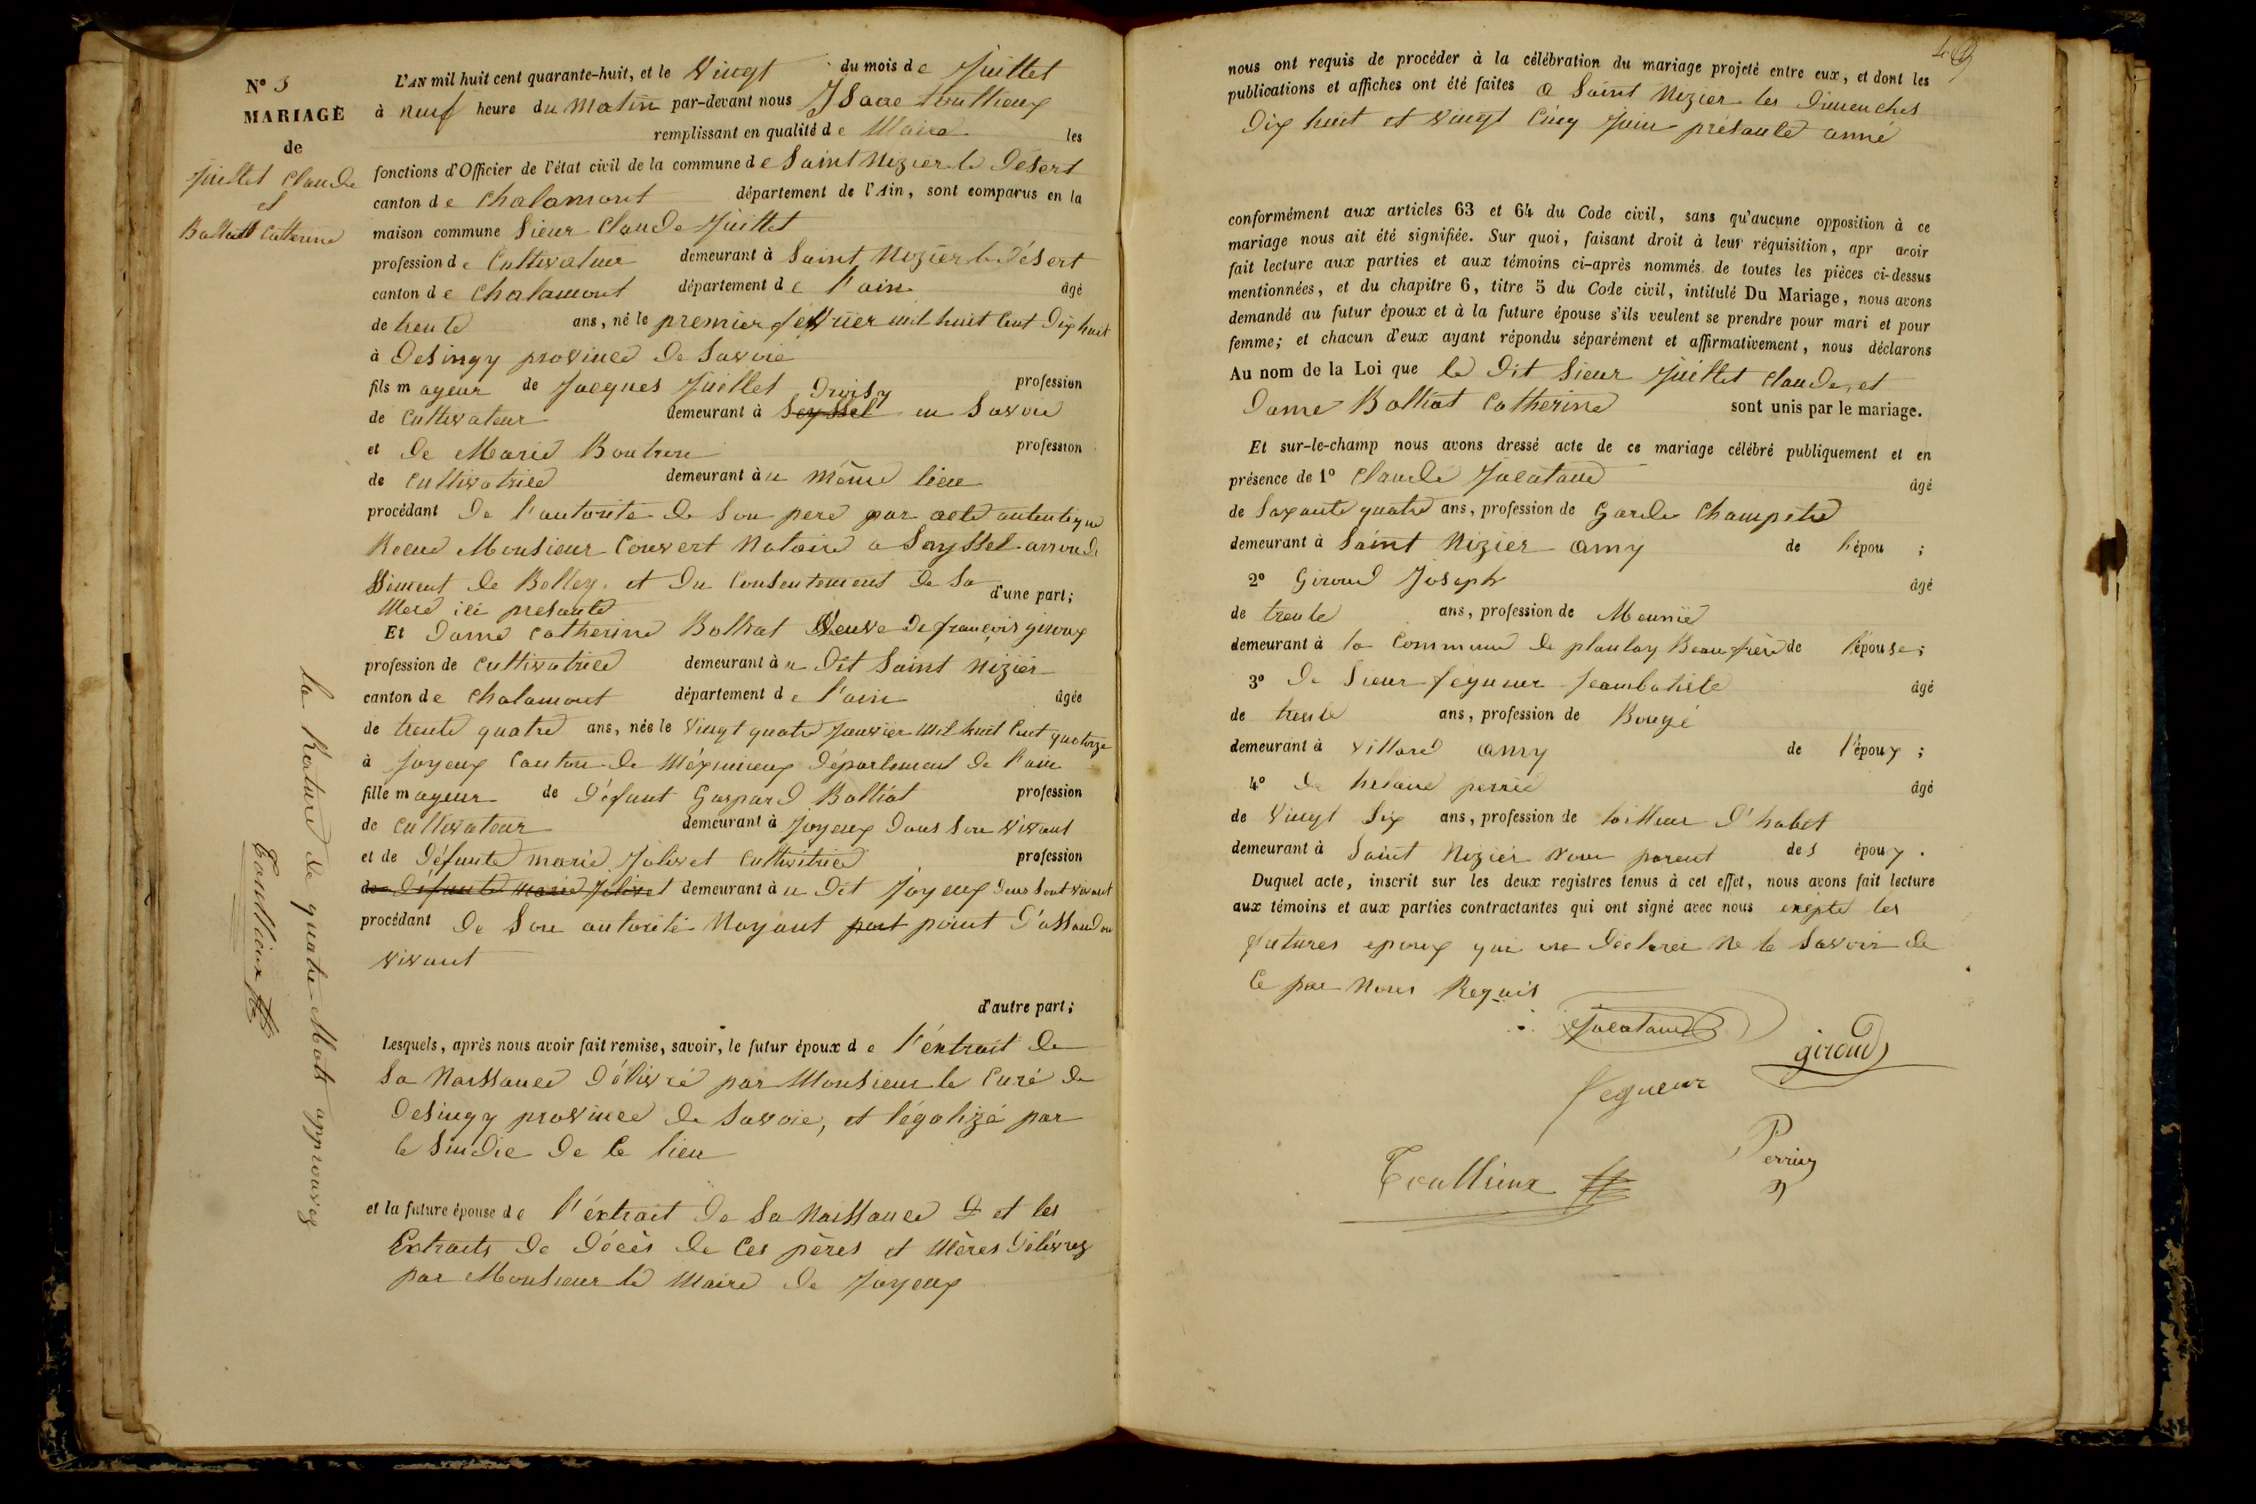 N° 3
MARIAGE
de
Juillet Claude
et
Balliat Catherine
L'AN mil huit cent quarante-huit, et le Vingt du mois de Juillet
à neuf heure du Matin par-devant nous Isaac toullieux
remplissant en qualité de Maire les
fonctions d'Officier de l'état civil de la commune de Saint Nizier le Désert
canton de Chalamont département de l'Ain, sont comparus en la
maison commune Sieur Claude Juillet
profession de Cultivateur demeurant à Saint Nizier le Désert
canton de Chalamont département de l'ain âgé
de trente ans, né le premier février mil huit Cent Dix huit
à Desingy province de Savoie
fils mageur de Jacques Juillet profession
Droisy
de Cultivateur demeurant à Seyssel en Savoie
et de Marie Boutron profession
de Cultivatrice demeurant àu Même lieu
procédant de l'autorité de Son pere par acte autentique
Recue Monsieur Couvert Notaire a Seyssel arrondi
Ssement de Belley. et du Consentement de Sa d'une part;
Mere ici présante
Et Dame Catherine Balliat Veuve de françois giroux
profession de Cultivatrice demeurant àu dit Saint Nizier
canton de Chalamont département de l'ain âgée
de trente quatre ans, née le Vingt quatre Janvier Mil huit Cent quatorze
à Joyeux Canton de Méximieux Département de l'ain
fille mageur de Défunt Gaspard Balliat profession
de Cultivateur demeurant à Joyeux Dans Son Vivant
et de Défunte marie Jolivet Cultivitrice profession
de Défunte Marie Jolivet demeurant àu Dit Joyeux Dans Sont vivant
procédant de Son autorité Nayant part point D'assandou
vivant
d'autre part;
Lesquels, après nous avoir fait remise, savoir, le futur époux de l'éxtrait de
Sa Naissance Délivré par Monsieur le Curé de
Desingy province de Savoie, et légalizé par
le Sindic de Ce lieu
et la future épouse de l'éxtrait de Sa Naissance D et les
Extraits de Décès de Ces pères et Mères Délivrez
par Monsieur le Maire de Joyeux
la Rature de quatre Mots approuvez
Toullieux
49
nous ont requis de procéder à la célébration du mariage projeté entre eux, et dont les
publications et affiches ont été faites a Saint Nizier les Dimenches
Dix huit et Vingt Cinq Juin présante anné
conformément aux articles 63 et 64 du Code civil, sans qu'aucune opposition à ce
mariage nous ait été signifiée. Sur quoi, faisant droit à leur réquisition, apr avoir
fait lecture aux parties et aux témoins ci-après nommés de toutes les pièces ci-dessus
mentionnées, et du chapitre 6, titre 5 du Code civil, intitulé Du Mariage, nous avons
demandé au futur époux et à la future épouse s'ils veulent se prendre pour mari et pour
femme; et chacun d'eux ayant répondu séparément et affirmativement, nous déclarons
Au nom de la Loi que le Dit Sieur Juillet Claude, et
Dame Balliat Catherine sont unis par le mariage.
Et sur-le-champ nous avons dressé acte de ce mariage célébré publiquement et en
présence de 1° Claude Jacataud âgé
de Soxante quatre ans, profession de Garde Champetre
demeurant à Saint Nizier amy de l'épou ;
2° Giroud Joseph âgé
de trente ans, profession de Meunié
demeurant à la Commune de plantay Beau frère de l'épouse;
3° De Sieur fegueur Jeambatiste âgé
de trente ans, profession de Bougé
demeurant à Villard amy de l'époux ;
4° De perrié âgé
de Vingt Six ans, profession de tailleur D'habit
demeurant à Saint Nizier Non parent des époux.
Duquel acte, inscrit sur les deux registres tenus à cet effet, nous avons fait lecture
aux témoins et aux parties contractantes qui ont signé avec nous exepté les
futures epoux qui on Déclarer Ne le Savoir de
Ce par Nous Requis
Jacataud
giroud
fegueur
Perrier
Toullieux